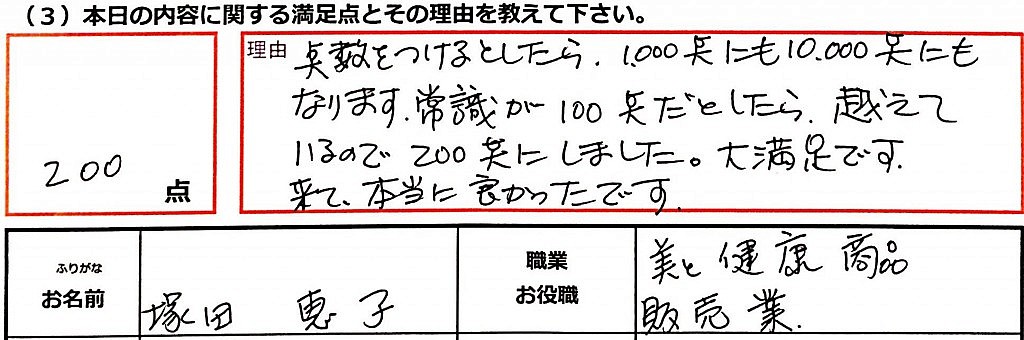 （３）本日の内容に関する満足点とその理由を教えて下さい。
200 点
理由 点数をつけるとしたら、1,000点にも10,000点にも
なります。常識が100点だとしたら、越えて
いるので200点にしました。大満足です。
来て、本当に良かったです。
ふりがな
お名前
塚田 恵子
職業
お役職
美と健康商品
販売業.